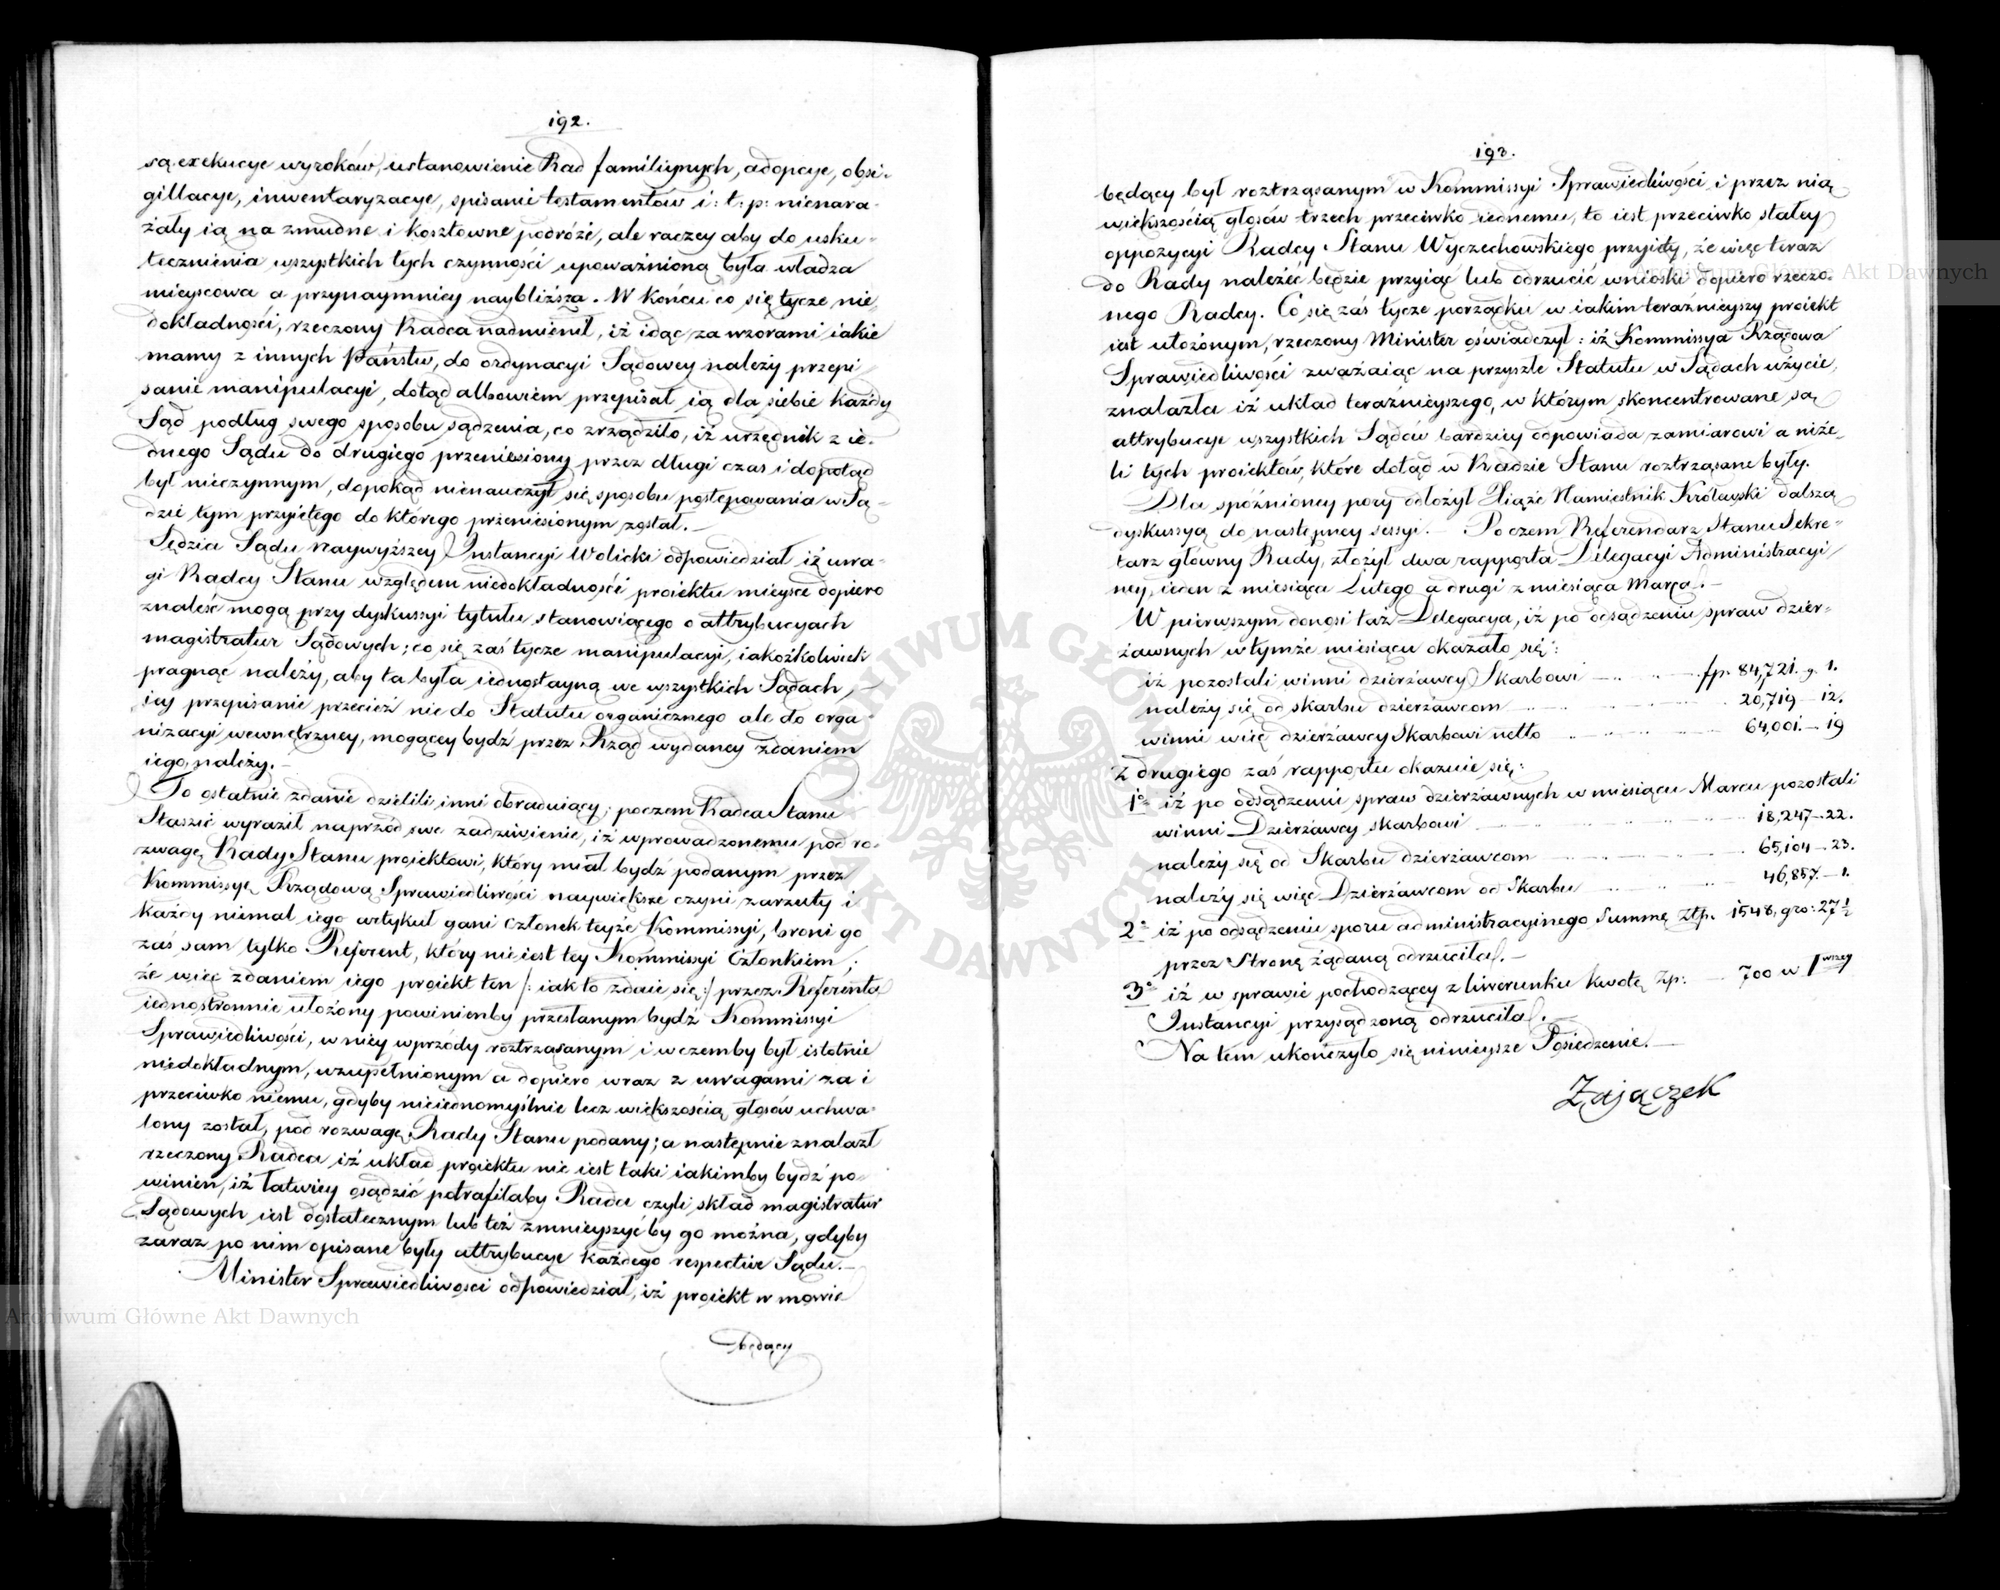 192.
są exekucye wyroków, ustanowienie Rad familiynych, adopcye, obsi-
gillacye, inwentaryzacye, spisanie testamentów i: t: p: nienara-
żały ią na zmudne i kosztowne podróże, ale raczey aby do usku-
tecznienia wszystkich tych czynności upoważnioną była władza
mieyscowa a przynaymniey naybliższa. W końcu co się tycze nie-
dokładności, rzeczony Radca nadmienił, iż idąc za wzorami iakie
mamy z innych Państw, do ordynacyi Sądowey należy przepi
sanie manipulacyi, dotąd albowiem przepisał ią dla siebie każdy
Sąd podług swego sposobu sądzenia, co zrządziło, iż urzędnik z ie-
dnego Sądu do drugiego przeniesiony przez długi czas i dopotąd
był nieczynnym, dopokąd nienauczył się sposobu postępowania w Są-
dzie tym przyiętego do którego przeniesionym został.—
Sędzia Sądu Naywyższey Instancyi Wolicki odpowiedział iż uwa-
gi Radcy Stanu względem niedokładności proiektu mieysce dopiero
znaleść mogą przy dyskussyi tytułu stanowiącego o attrybucyach
magistratur Sądowych; co się zaś tycze manipulacyi, iakożkolwiek
pragnąć należy, aby ta była iednostayną we wszystkich Sądach,—
iey przepisanie przecież nie do Statutu organicznego ale do orga-
nizacyi wewnętrzney, mogącey bydź przez Rząd wydaney zdaniem
iego, należy.—
To ostatnie zdanie dzielili inni obraduiący; poczem Radca Stanu
Staszic wyraził naprzód swe zadziwienie, iż wprowadzonemu pod ro-
zwagę Rady Stanu proiektowi, który miał bydź podanym przez
Kommissyę Rządową Sprawiedliwości naywiększe czyni zarzuty i
każdy niemal iego artykuł gani Członek teyże Kommissyi, broni go
zaś sam tylko Referent, który nie iest tey Kommissyi Członkiem;
że więc zdaniem iego proiekt ten /: iak to zdaie się :/ przez Referenta
iednostronnie ułożony powinienby przesłanym bydź Kommissyi
Sprawiedliwości, w niey wprzódy roztrząsanym i w czemby był istotnie
niedokładnym, uzupełnionym a dopiero wraz z uwagami za i
przeciwko niemu, gdyby nieiednomyślnie lecz większością głosów uchwa-
lony został, pod rozwagę Rady Stanu podany; a następnie znalazł
rzeczony Radca iż układ proiektu nie iest taki iakimby bydź po-
winien, iż łatwiey osądzić potrafiłaby Rada czyli skład magistratur
Sądowych iest dostatecznym lub też zmnieyszyć by go można, gdyby
zaraz po nim opisane były attrybucye każdego respective Sądu.—
Minister Sprawiedliwości odpowiedział, iż proiekt w mowie
będący
193.
będący był roztrząsanym w Kommissyi Sprawiedliwości i przez nią
większością głosów trzech przeciwko iednemu, to iest przeciwko stałey
oppozycyi Radcy Stanu Wyczechowskiego przyięty, że więc teraz
do Rady należeć będzie przyiąć lub odrzucić wnioski dopiero rzeczo-
nego Radcy. Co się zaś tycze porządku w iakim teraźnieyszy proiekt
iest ułożonym, rzeczony Minister oświadczył: iż Kommissya Rządowa
Sprawiedliwości zważaiąc na przyszłe Statutu w Sądach użycie,
znalazła iż układ teraźnieyszego, w którym skoncentrowane są
attrybucye wszystkich Sądów bardziey odpowiada zamiarowi a niże-
li tych proiektów, które dotąd w Radzie Stanu roztrząsane były.
Dla spóźnioney pory odłożył Xiąże Namiestnik Królewski dalszą
dyskussyą do następney sessyi.— Poczem Referendarz Stanu Sekre-
tarz główny Rady, złożył dwa rapporta Delegacyi Administracyi-
ney, ieden z miesiąca Lutego a drugi z miesiąca Marca.—
W pierwszym donosi taż Delegacya, iż po osądzeniu spraw dzier-
żawnych w tymże miesiącu okazało się:
iż pozostali winni dzierżawcy Skarbowi — fp. 84,721. g. 1.
należy się od skarbu dzierżawcom 20,719 — 12.
winni więc dzierżawcy Skarbowi netto 64,001. — 19
Z drugiego zaś rapportu okazuie się:
1o iż po osądzeniu spraw dzierżawnych w miesiącu Marcu pozostali
winni Dzierżawcy skarbowi 18,247 — 22.
należy się od Skarbu dzierżawcom 65,104 — 23.
należy się więc Dzierżawcom od Skarbu 46,857. — 1.
2o iż po osądzeniu sporu administracyinego Summę Złp. 1548, gro: 27 1/2
przez Stronę żądaną odrzuciła.—
3o iż w sprawie pochodzącey z liwerunku kwotę Zp: — 700 w 1wszey
Instancyi przysądzoną odrzuciła.—
Na tem ukończyło się ninieysze Posiedzenie.—
Zajączek
Archiwum Główne Akt Dawnych
ARCHIWUM GŁÓWNE AKT DAWNYCH
Archiwum Główne Akt Dawnych